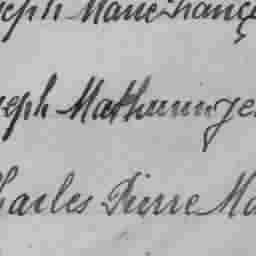 eph Marie Franç
seph Mathurin Je
harles Pierre Ma